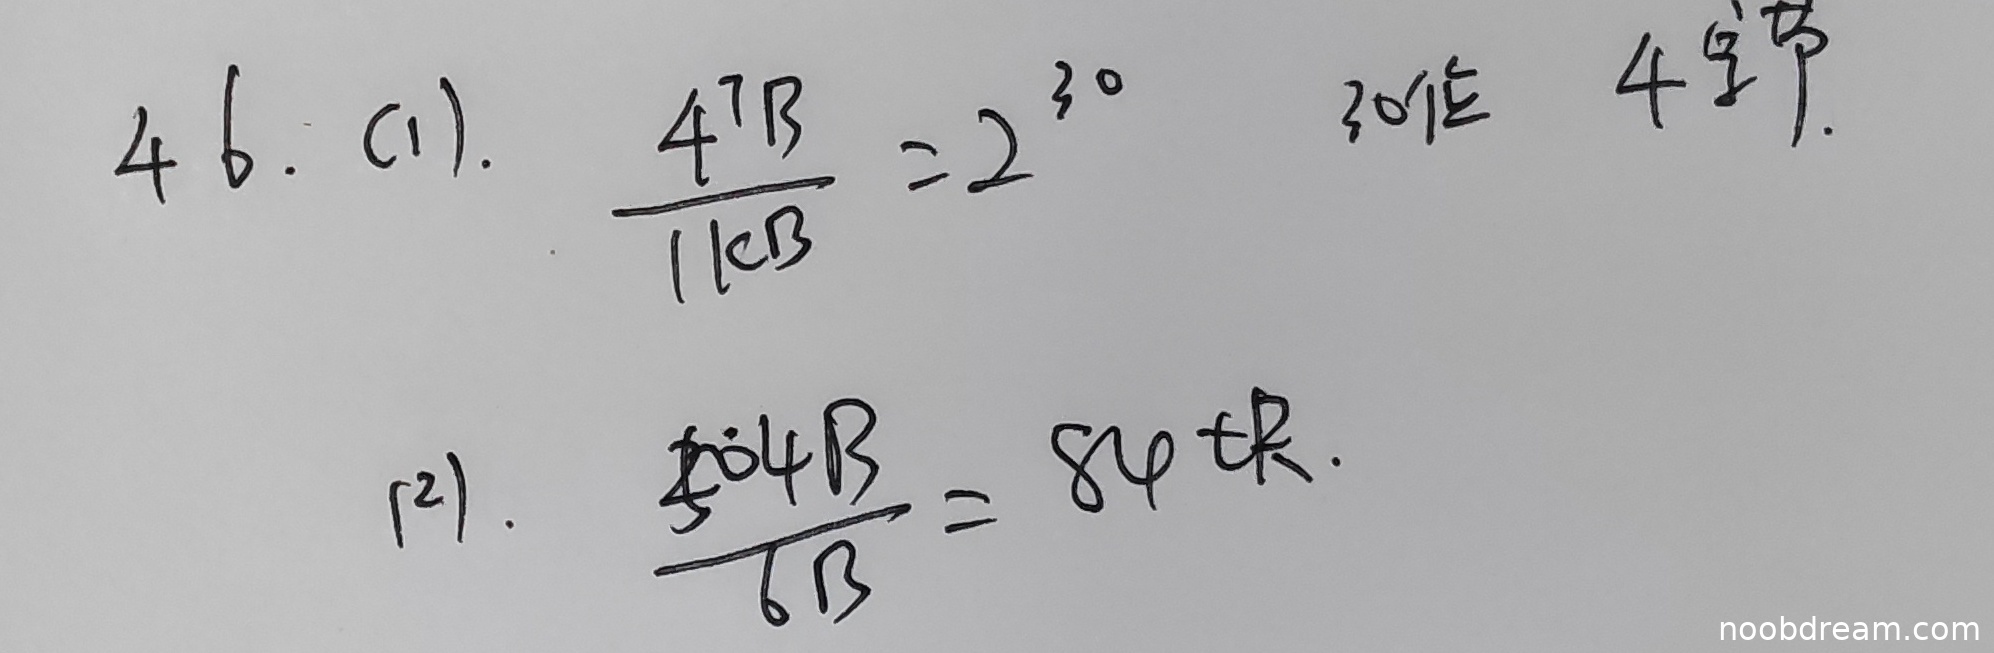 46. (1). 4TB / 1KB = 2^30 30位 4字节.
(2). 504B / 6B = 84块.
noobdream.com